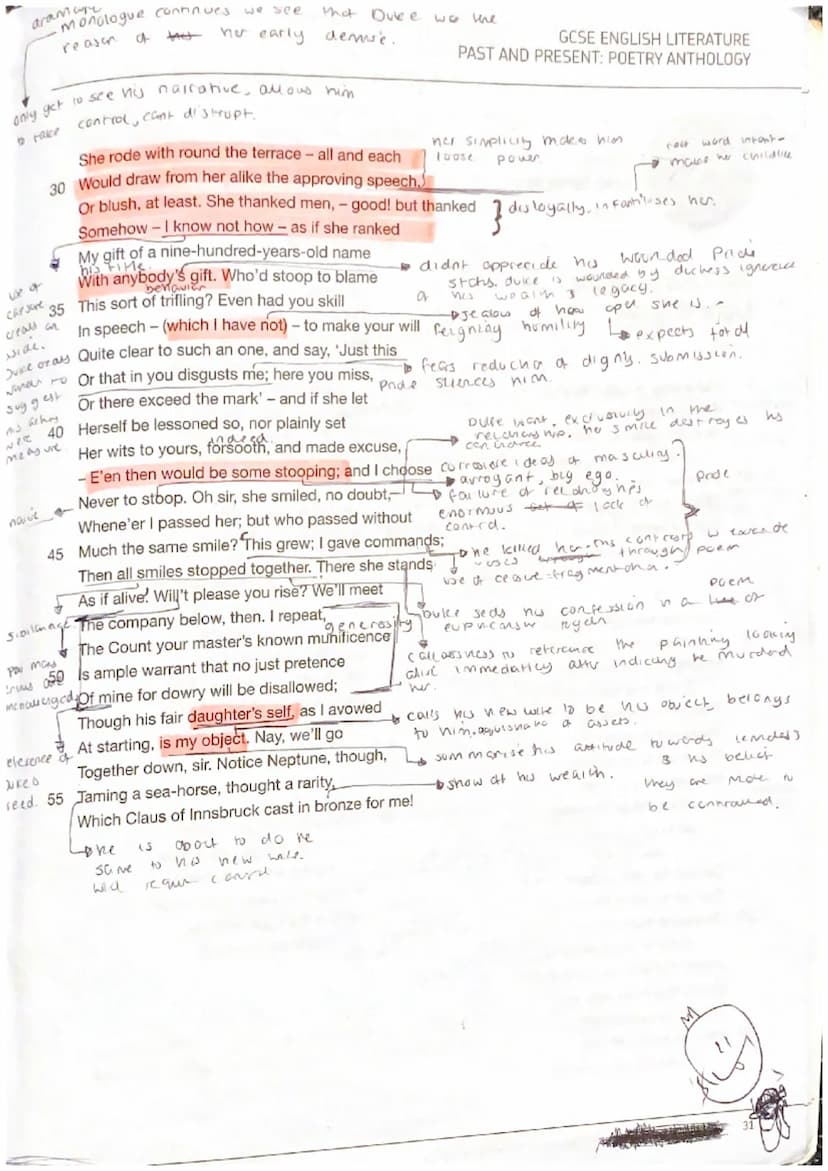 dramatic
monologue continues we see that Duke was the
reason of her early demise.
GCSE ENGLISH LITERATURE
PAST AND PRESENT: POETRY ANTHOLOGY
only get to see his narrative, allows him
to take control, cant disrupt.
her simplicity makes him
loose power
She rode with round the terrace – all and each
30 Would draw from her alike the approving speech,
Or blush, at least. She thanked men, – good! but thanked
disloyally, infantilises her.
Somehow – I know not how – as if she ranked
My gift of a nine-hundred-years-old name
his title.
didnt appreciate his wounded Pride
With anybody's gift. Who'd stoop to blame
status. duke is wounded by duchess ignorence
behaviour
of his wealth & legacy.
35 This sort of trifling? Even had you skill
jealous of how open she is.
In speech – (which I have not) – to make your will
feigning humility
expects total
submission.
Quite clear to such an one, and say, 'Just this
fears reduction of dignity.
Or that in you disgusts me; here you miss,
Pride silences him.
Or there exceed the mark' – and if she let
40 Herself be lessoned so, nor plainly set
Duke want exclusivity in the
relationship. her smile destroyes his
indeed
Her wits to yours, forsooth, and made excuse,
– E'en then would be some stooping; and I choose
corrosive ideas of masculinity.
arrogant, big ego.
pride
Never to stoop. Oh sir, she smiled, no doubt,
failure of relationships
Whene'er I passed her; but who passed without
enormous lack of
control.
45 Much the same smile? This grew; I gave commands;
he killed her.
through poem
Then all smiles stopped together. There she stands
use of
As if alive. Will't please you rise? We'll meet
poem
The company below, then. I repeat,
Duke seals his confession in a of
generosity
The Count your master's known munificence
callousness to reference the painting looking
alive immediatly after indicating he murdered
her.
50 Is ample warrant that no just pretence
Of mine for dowry will be disallowed;
Though his fair daughter's self, as I avowed
calls his new wife to be his object, belongs
to him. of assets.
At starting, is my object. Nay, we'll go
summarise his attitude towards females
& his belief
they are made to
be controlled.
Together down, sir. Notice Neptune, though,
55 Taming a sea-horse, thought a rarity,
show of his wealth.
Which Claus of Innsbruck cast in bronze for me!
he is about to do the
same to his new wife.
will require control
31